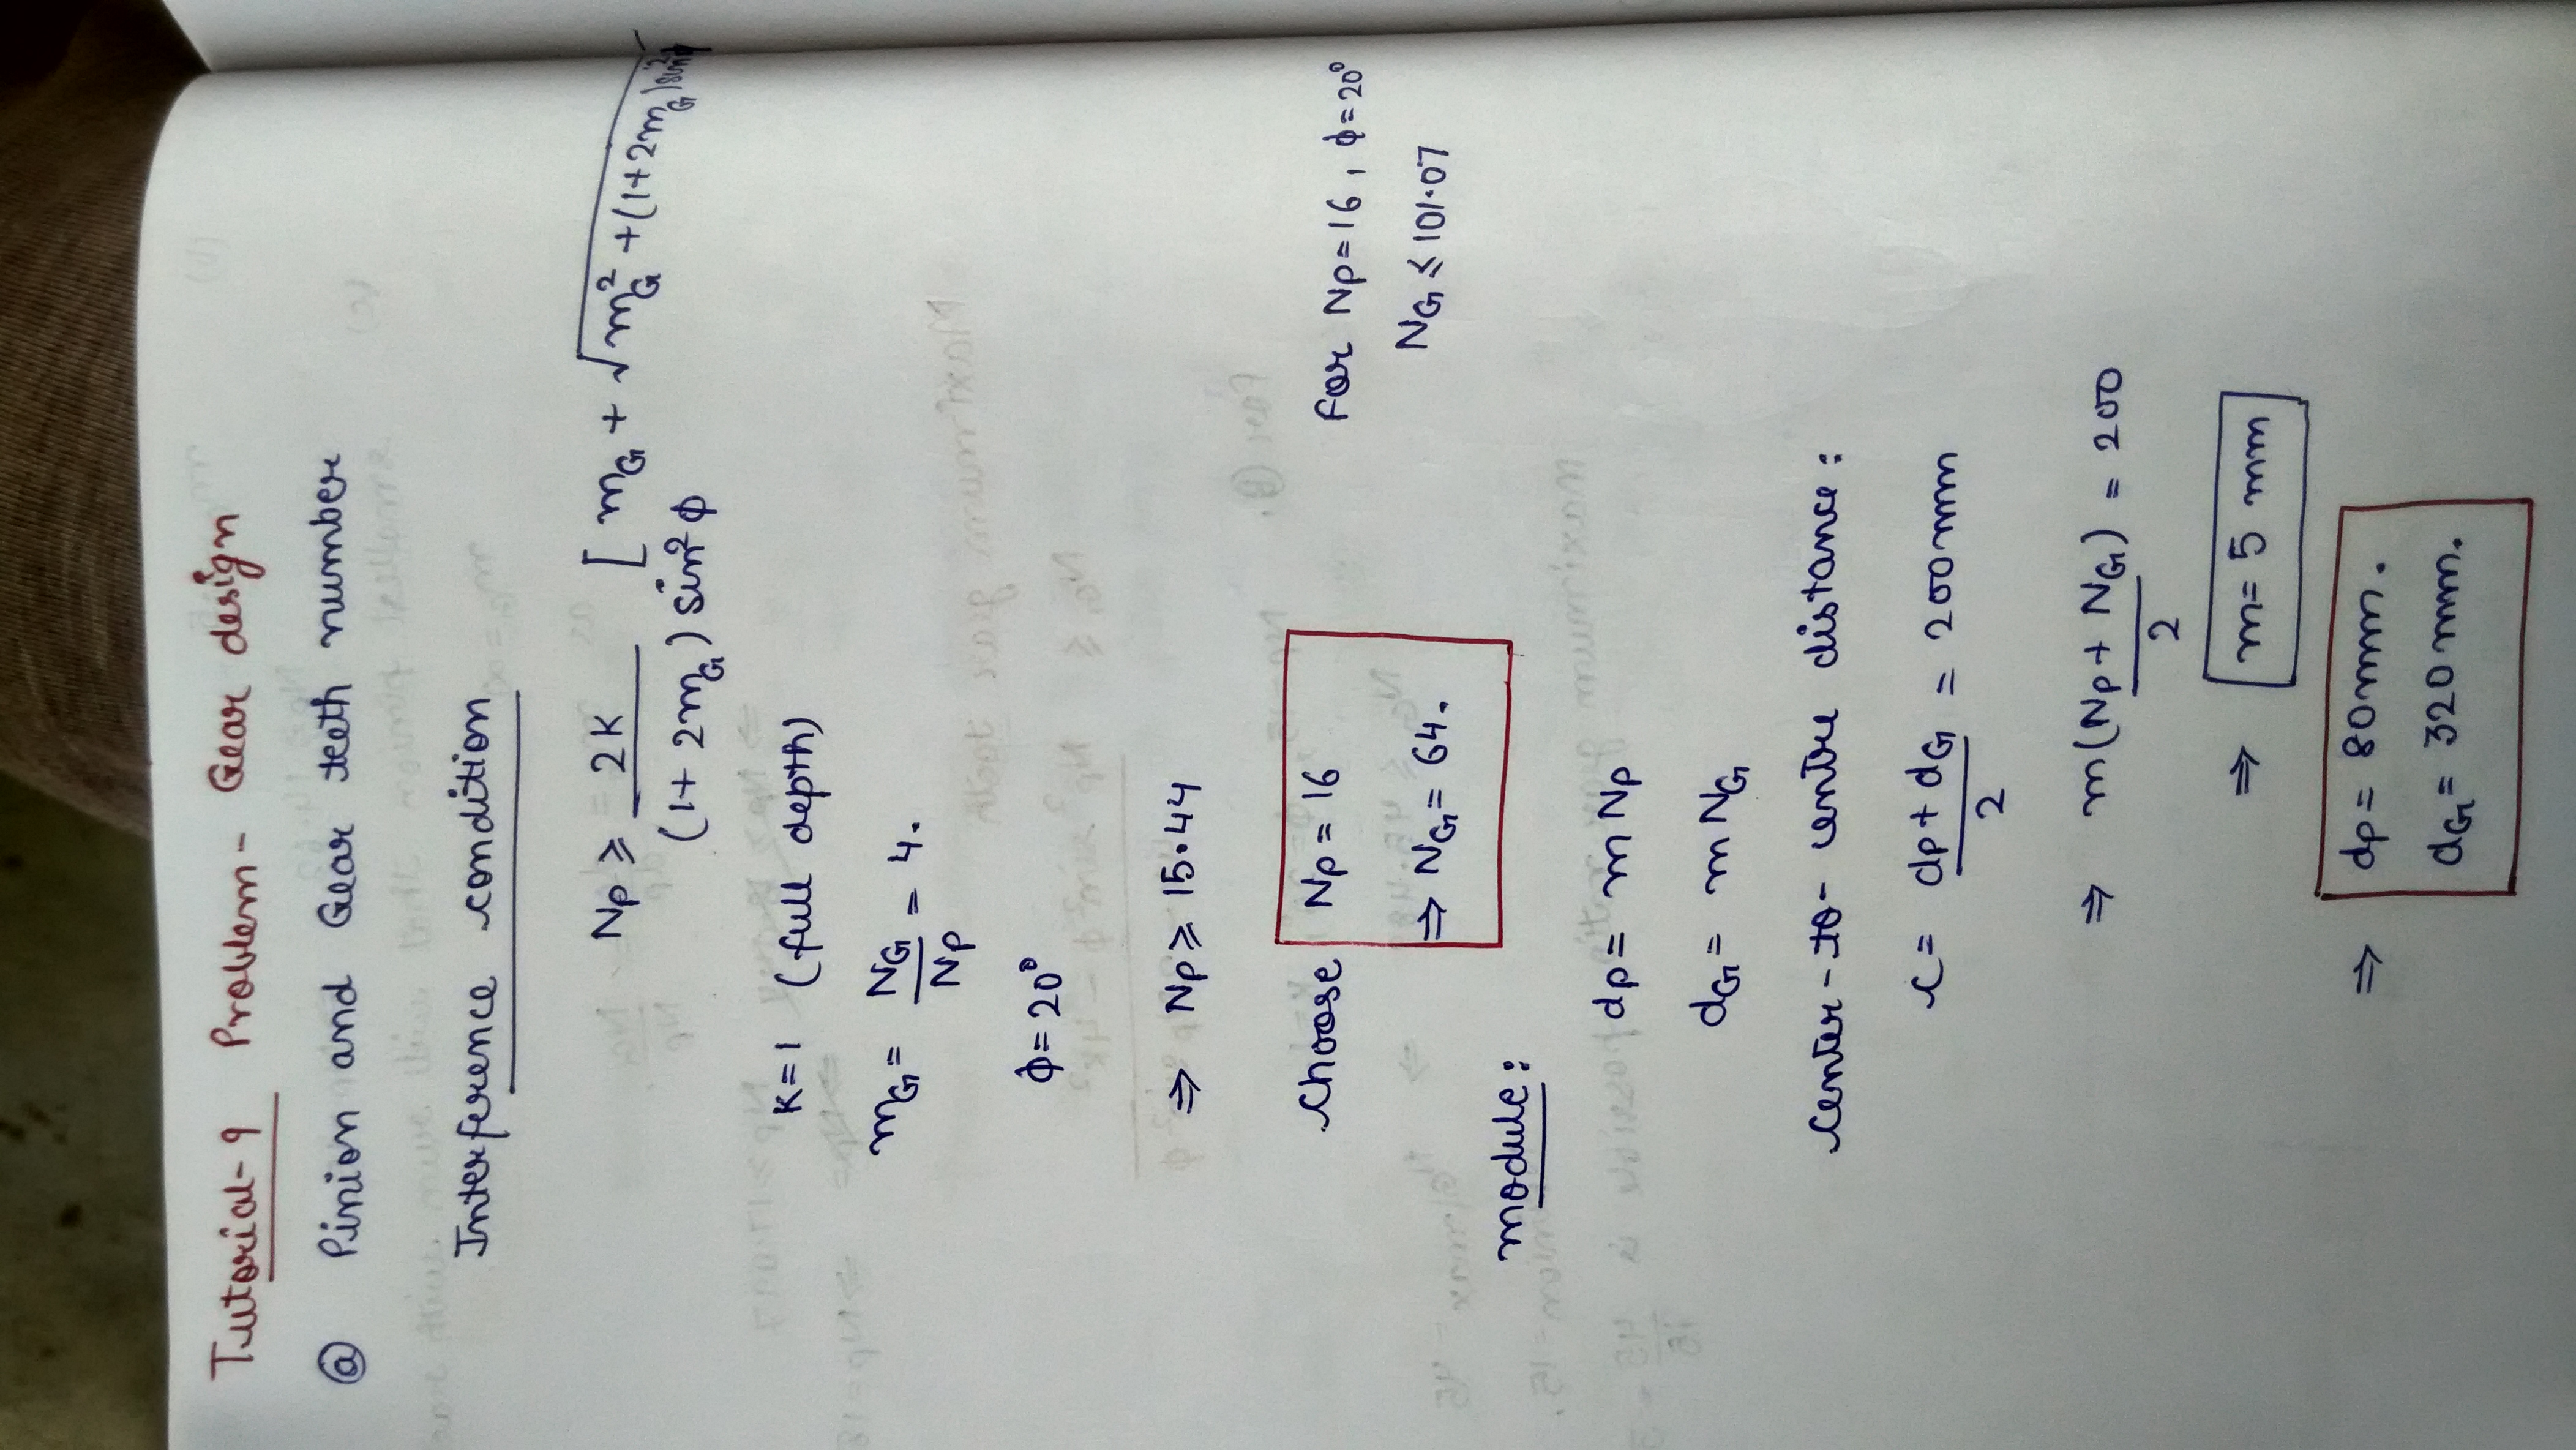 Tutorial-9 Problem- Gear design
ⓐ Pinion and Gear teeth number
Interference condition
Np ≥ 2K / (1+2m_G) sin²ϕ [ m_G + √(m_G² + (1+2m_G) sin²ϕ
K=1 (full depth)
m_G = N_G / Np = 4.
ϕ=20°
⇒ Np ≥ 15.44
choose Np = 16
⇒ N_G = 64.
For Np=16, ϕ=20°
N_G ≤ 101.07
module:
dp = m Np
d_G = m N_G
center-to-centre distance:
c = (dp + d_G) / 2 = 200mm
⇒ m(Np + N_G) / 2 = 200
⇒ m = 5 mm
⇒ dp = 80mm.
d_G = 320mm.